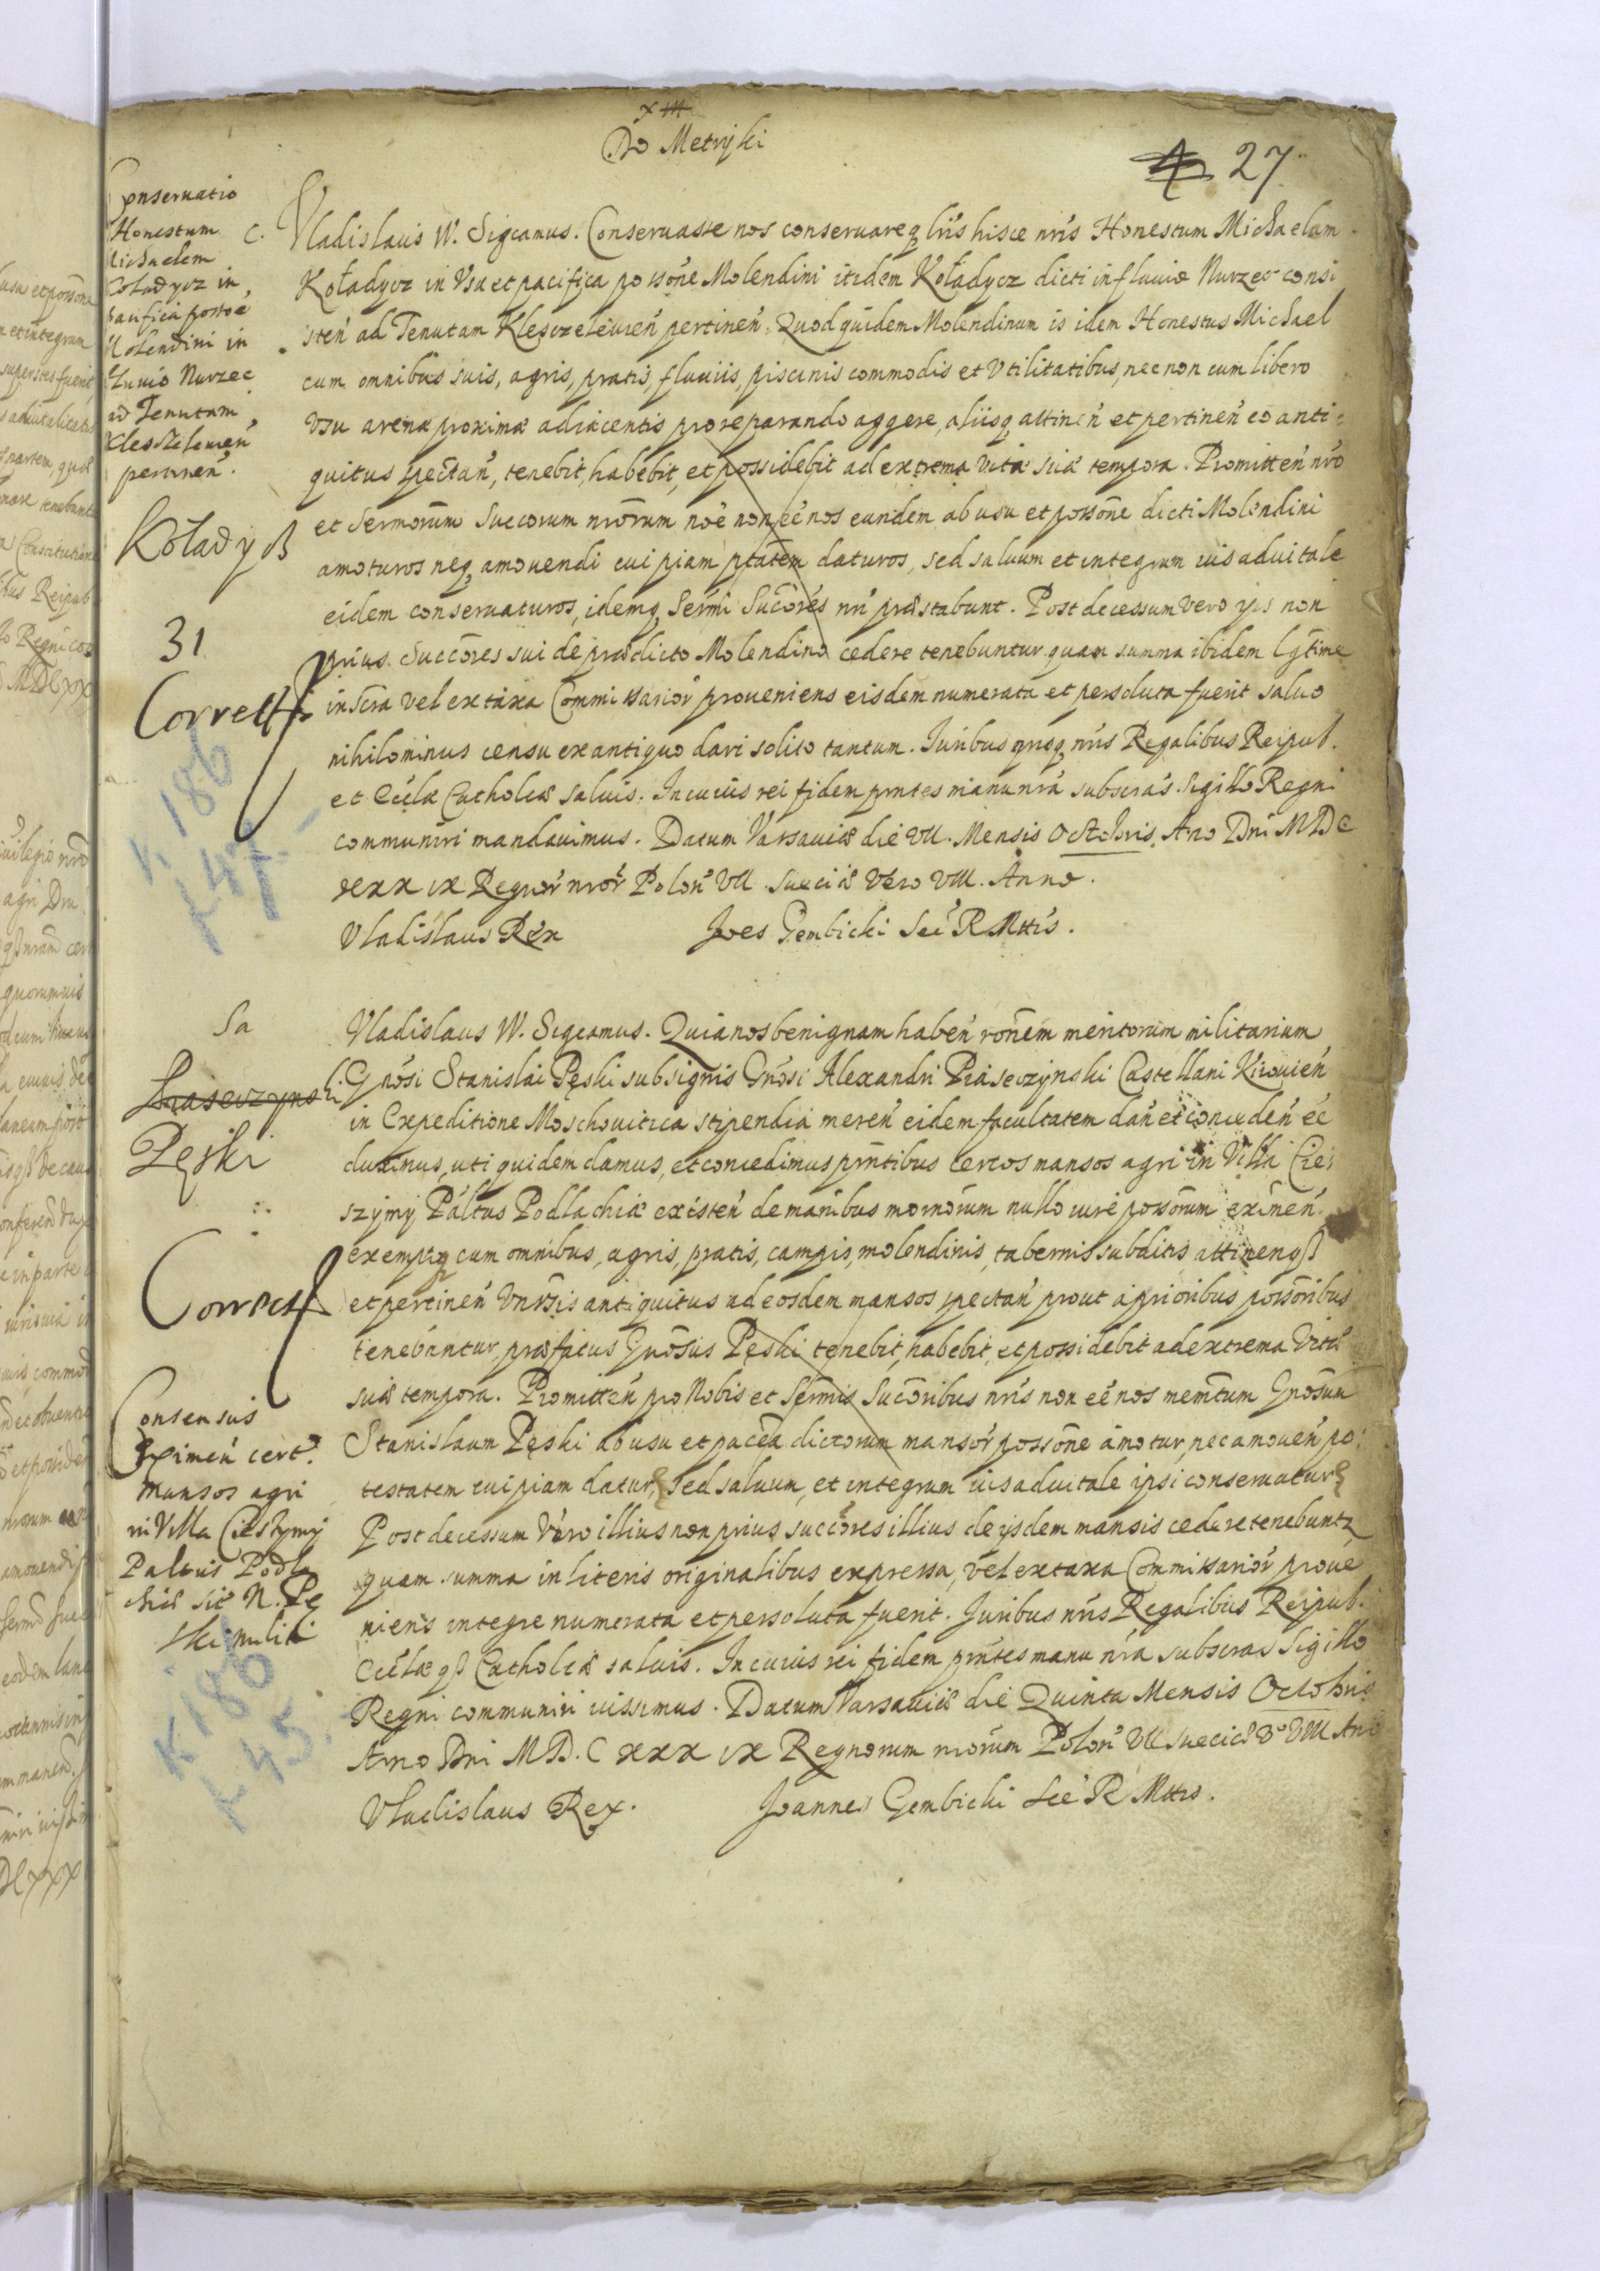 Do Metryki
27
Conservatio
Honestum
Michaelem
Coladycz in
pacifica possoe
Molendini in
Fluvio Nurzec
ad Tenutam
Kleszczelewień
pertineń.
Koładycz
31
Correct
K 186
f 47
C. Vladislaus IV. Sigcamus. Conservasse nos conservareq lris hisce nris Honestum Michaelem
Koładycz in Usu et pacifica possōne Molendini itidem Koładycz dicti in fluvio Nurzec consi
steń ad Tenutam Kleszczeleuień pertineń. Quod quidem Molendinum is idem Honestus Michael
cum omnibus suis, agris, pratis, fluuiis, piscinis commodis et Utilitatibus, nec non cum libero
Usu arenæ proximæ adiacentis pro reparando aggere, aliisq attineń et pertineń eo anti-
quitus spectań, tenebit, habebit, et possidebit ad extrema vitæ suæ tempora. Promitteń nro
et Sermorum Succorum nrorum noe non ee nos eundem ab usu et possōne dicti Molendini
amoturos neq amovendi cuipiam ptatem daturos, sed saluum et integrum ius aduitale
eidem conservaturos, idemq Sermi Succores nri præstabunt. Post decessum vero ips non
prius Succores sui de prædicto Molendino cedere tenebuntur quam summa ibidem lgtime
inscra vel ex taxa Commissarior proveniens eisdem numerata et persoluta fuerit salvo
nihilominus censu ex antiquo dari solito tantum. Iuribus qnsq nris Regalibus Reipub.
et Ecclæ Catholcæ salvis. In cuius rei fidem prntes manu nra subscras. Sigillo Regni
communiri mandavimus. Datum Varsaviæ die VII. Mensis Octobris. Ano Dni MDC
XXX IX Regnor nror Polon VII. Sueciæ Vero VIII. Anno.
Vladislaus Rex Joes Gembicki Sec R Mttis.
Sa
Piaseczynski
Pęski
Correct
Consensus
Eximeń cert.
mansos agri
in Villa Cieszymy
Paltus Podla
chiæ sit N. Pę
ski militi
K 186
f 45
Vladislaus IV. Sigcamus. Quia nos benignam habeń ronem meritorum militarium
Gnosi Stanislai Pęski sub signis Gnosi Alexandri Piaseczynski Castellani Kiiouień
in Expeditione Moschouitica stipendia mereń eidem facultatem dań et concedeń ee
duximus, uti quidem damus, et concedimus prntibus certos mansos agri in Villa Cie
szymy Paltus Podlachiæ existeń de manibus mornorum nullo iure possorum eximeń.
exemptq cum omnibus, agris, pratis, campis, molendinis, tabernis subditis attinenqs
et pertineń Unrsis antiquitus ad eosdem mansos spectań prout a prioribus possoribus
tenebantur, præfatus Gnosus Pęski tenebit, habebit, et possidebit ad extrema Vitæ
suæ tempora. Promitteń pro Nobis et Sermis Succoribus nris non ee nos memtum Gnosum
Stanislaum Pęski ab usu et pacca dictorum mansor possōne amotur, nec amoueń po-
testatem cuipiam datur, sed saluum, et integrum ius aduitale ipsi conservatur
Post decessum Vero illius non prius succores illius de ijsdem mansis cedere tenebuntr
quam summa in literis originalibus expressa, vel ex taxa Commissarior prove
niens integre numerata et persoluta fuerit. Juribus nris Regalibus Reipub.
Ecclæ qs Catholcæ salvis. In cuius rei fidem prntes manu nra subscras Sigillo
Regni communiri iussimus. Datum Varsaviæ die Quinta Mensis Octobris
Anno Dni M D. C XXX IX Regnorum nrorum Polon VII Sueciæ Vo VIII Ano
Vladislaus Rex. Joannes Gembicki Sec R Mttis.